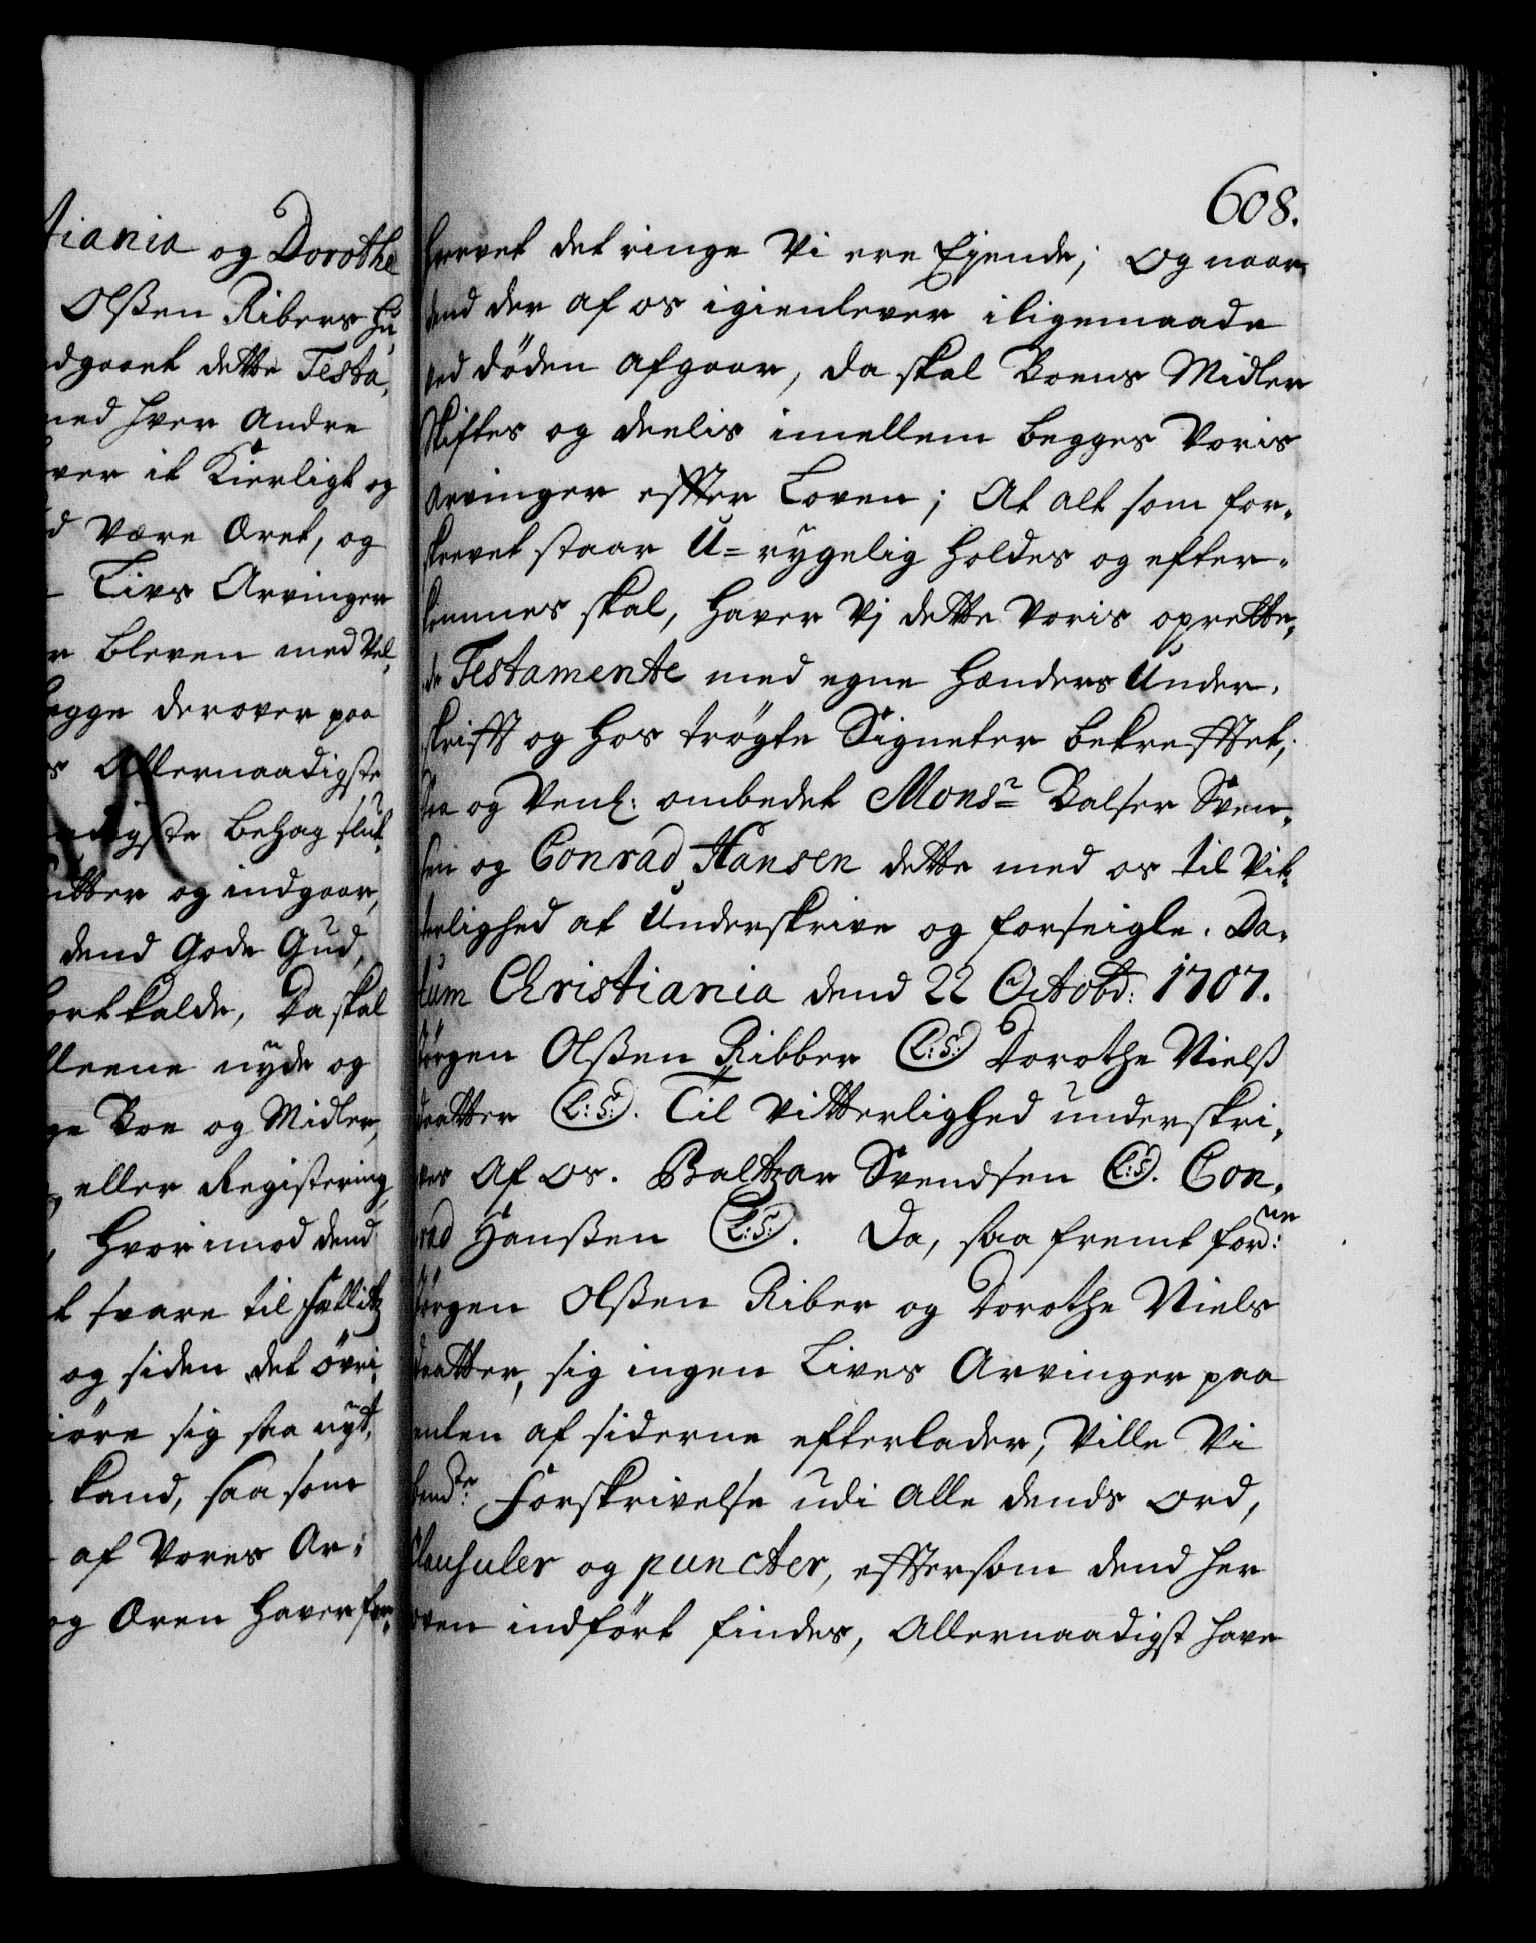 tiania og Dorothe
Olßen Ribers Hu¬
dgaaet dette Testa,
med hver Andre
ver it Kierligt og
d være Æret, og
Livs Arvinger
er bleven med Vel¬
egge derover paa
s Allernaadigste
naadigste behag slut¬
utter og indgaar,
dend Gode Gud,
ort kalde, Da skal
lleene nyde og
ge Boe og Midler,
eller Registering
, Hvorimod dend
t svare til
og siden det øvri¬
iøre sig saa nyt¬
kand, saasom
af Vores Ar¬
og Æren haver for¬
608.
hvervet det ringe Vi ere Ejende; Og naar
dend der af os igienlever iligemaade
ved døden afgaar, da skal Boens Midler
Skiftes og deelis imellem begges Voris
Arvinger effter Loven; At alt som for¬
skrevet staar U=rygelig holdes og efter¬
kommes skal, haver Vj dette Voris oprette¬
de Testamente med egne Hænders Under¬
skrifft og hos trøgte Signeter bekrefftet,
Saa og Venl: ombedet Monsr Balser Sven¬
sen og Conrad Hansen dette med os til Vit¬
terlighed at Underskrive og forseigle. Da¬
tum Christiania dend 22 Octobr: 1707.
Jørgen Olßen Ribber (L:S:) Dorothe Nielß
daatter (L:S:). Til Vitterlighed underskri¬
ves Af Os. Baltzar Svendsen (L:S:). Con¬
rad Hanßen (L:S:). Da, saafremt fornne:
Jørgen Olßen Riber og Dorothe Niels
daatter, sig ingen Lives Arvinger paa
enten af siderne efterlader, Ville Vi
bemte: Forskrivelse udi Alle dends Ord,
Clausuler og puncter, efftersom dend her
oven indført findes, Allernaadigst have